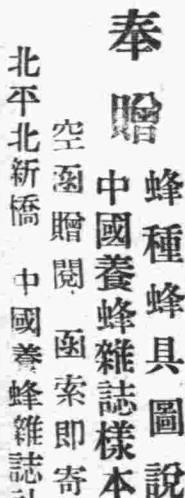 奉贈
蜂種蜂具圖說
中國養蜂雜誌樣本
空函贈閱 函索即寄
北平北新橋 中國養蜂雜誌社